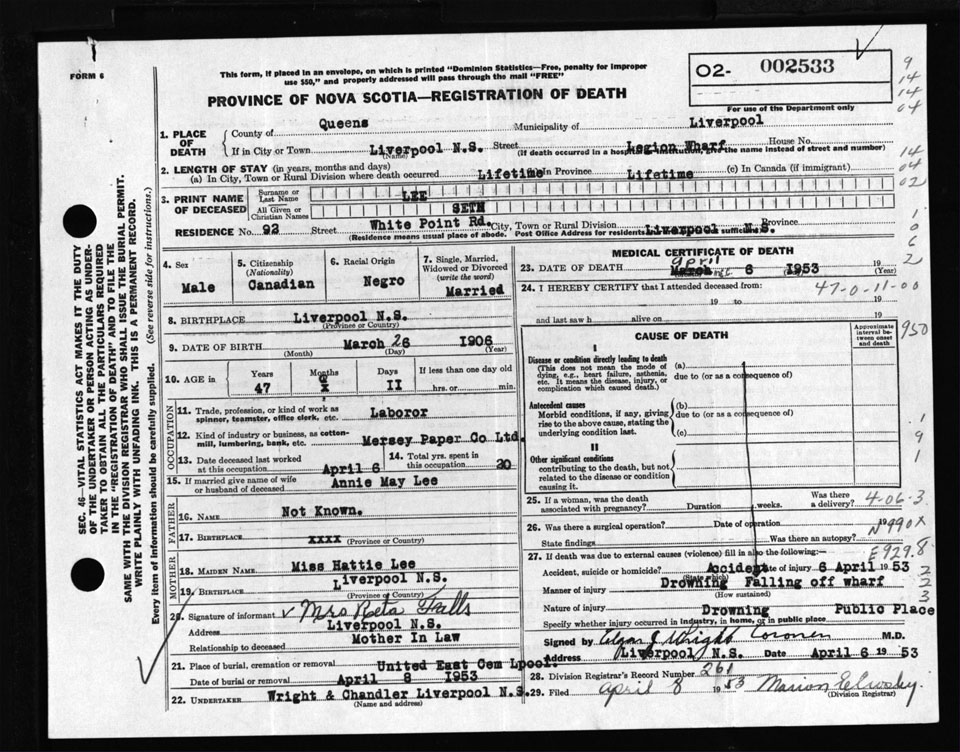 FORM 6
This form, if placed in an envelope, on which is printed "Dominion Statistics—Free, penalty for improper
use $50," and properly addressed will pass through the mail "FREE"
PROVINCE OF NOVA SCOTIA—REGISTRATION OF DEATH
O2- 002533
For use of the Department only
9
14
14
04
14
04
02
1
0
6
2
SEC. 46—VITAL STATISTICS ACT MAKES IT THE DUTY
OF THE UNDERTAKER OR PERSON ACTING AS UNDER-
TAKER TO OBTAIN ALL THE PARTICULARS REQUIRED
IN THE "REGISTRATION OF DEATH" AND TO FILE THE
SAME WITH THE DIVISION REGISTRAR WHO SHALL ISSUE THE BURIAL PERMIT.
WRITE PLAINLY WITH UNFADING INK. THIS IS A PERMANENT RECORD.
Every item of information should be carefully supplied. (See reverse side for instructions.)
1. PLACE OF DEATH
County of Queens Municipality of Liverpool
If in City or Town Liverpool N.S. Street Legion Wharf House No.
(Name) (If death occurred in a hospital institution, give the name instead of street and number)
2. LENGTH OF STAY (in years, months and days)
(a) In City, Town or Rural Division where death occurred Lifetime in Province Lifetime (c) In Canada (if immigrant)
3. PRINT NAME OF DECEASED
Surname or Last Name LEE
All Given or Christian Names SETH
RESIDENCE No. 92 Street White Point Rd. City, Town or Rural Division Liverpool N.S. Province
(Residence means usual place of abode. Post Office Address for residents sufficient)
4. Sex
Male
5. Citizenship
(Nationality)
Canadian
6. Racial Origin
Negro
7. Single, Married,
Widowed or Divorced
(write the word)
Married
8. BIRTHPLACE Liverpool N.S.
(Province or Country)
9. DATE OF BIRTH March 26 1906
(Month) (Day) (Year)
10. AGE in Years Months Days If less than one day
47 X II hrs. or min.
OCCUPATION
11. Trade, profession, or kind of work as
spinner, teamster, office clerk, etc. Laboror
12. Kind of industry or business, as cotten-
mill, lumbering, bank, etc. Mersey Paper Co Ltd.
13. Date deceased last worked
at this occupation April 6
14. Total yrs. spent in
this occupation 20
15. If married give name of wife
or husband of deceased Annie May Lee
FATHER
16. NAME Not Known.
17. BIRTHPLACE XXXX (Province or Country)
MOTHER
18. MAIDEN NAME Miss Hattie Lee
19. BIRTHPLACE Liverpool N.S.
(Province or Country)
20. Signature of informant Mrs Reta Falls
Address Liverpool N.S.
Relationship to deceased Mother In Law
21. Place of burial, cremation or removal United East Cem Lpool.
Date of burial or removal April 8 1953
22. UNDERTAKER Wright & Chandler Liverpool N.S.
(Name and address)
MEDICAL CERTIFICATE OF DEATH
April
23. DATE OF DEATH March 6 1953 19
(Year)
24. I HEREBY CERTIFY that I attended deceased from 47-0-11-00
19 to 19
and last saw h alive on 19
CAUSE OF DEATH
Approximate
interval be-
tween onset
and death
950
I
Disease or condition directly leading to death
(This does not mean the mode of
dying, e.g., heart failure, asthenia,
etc. It means the disease, injury, or
complication which caused death.)
(a)
due to (or as a consequence of)
Antecedent causes
Morbid conditions, if any, giving
rise to the above cause, stating the
underlying condition last.
(b)
due to (or as a consequence of)
(c)
1
9
1
II
Other significant conditions
contributing to the death, but not
related to the disease or condition
causing it.
25. If a woman, was the death
associated with pregnancy? Duration weeks. Was there
a delivery? 4-06-3
26. Was there a surgical operation? Date of operation 19
N 990X
State findings Was there an autopsy?
E929.8
27. If death was due to external causes (violence) fill in also the following:
Accident, suicide or homicide? Accident Date of injury 6 April 1953
(State which)
Manner of injury Drowning Falling off wharf
(How sustained)
Nature of injury Drowning Public Place
Specify whether injury occurred in industry, in home, or in public place
2
2
3
Signed by Edgar J Wright Coroner M.D.
Address Liverpool N.S. Date April 6 19 53
28. Division Registrar's Record Number 261
29. Filed April 8 1953 Marion E Crosby.
(Division Registrar)